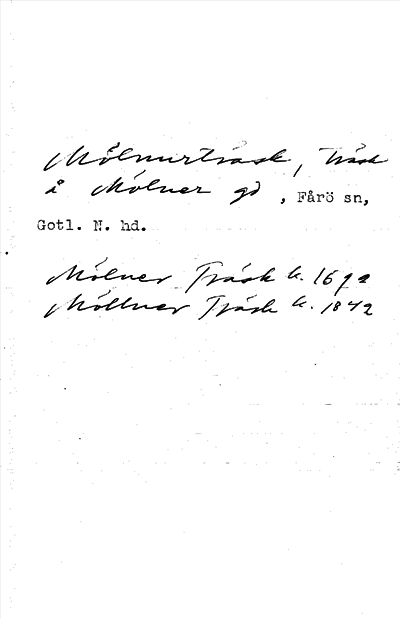 Mölnurträsk, Träsk
å Mölner gd, Fårö sn,
Gotl. N. hd.
Mölner Träsk k. 1692
Möllner Träsk k. 1842